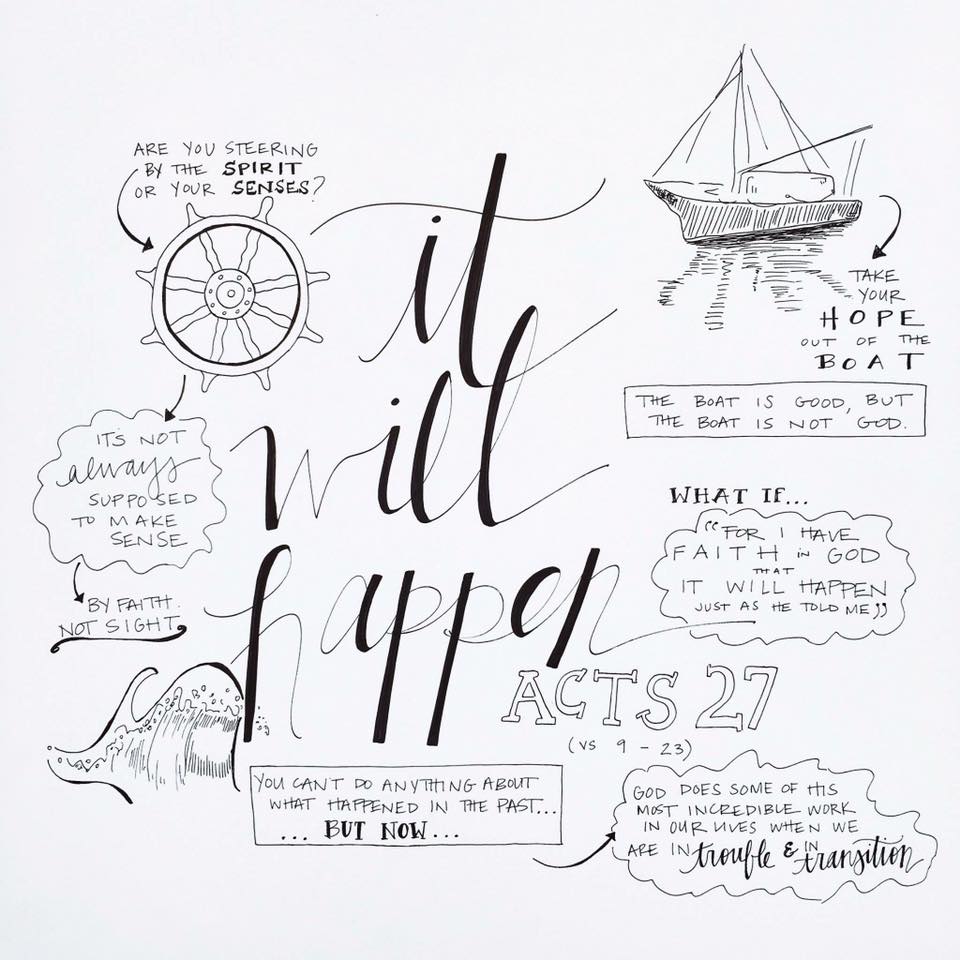 ARE YOU STEERING
BY THE SPIRIT
OR YOUR SENSES?
it
will
happen
TAKE
YOUR
HOPE
OUT OF THE
BOAT
THE BOAT IS GOOD, BUT
THE BOAT IS NOT GOD.
IT'S NOT
always
SUPPOSED
TO MAKE
SENSE
BY FAITH.
NOT SIGHT.
WHAT IF...
"FOR I HAVE
FAITH in GOD
THAT
IT WILL HAPPEN
JUST AS HE TOLD ME"
ACTS 27
(VS 9 - 23)
YOU CAN'T DO ANYTHING ABOUT
WHAT HAPPENED IN THE PAST...
... BUT NOW...
GOD DOES SOME OF HIS
MOST INCREDIBLE WORK
IN OUR LIVES WHEN WE
ARE IN trouble & IN transition